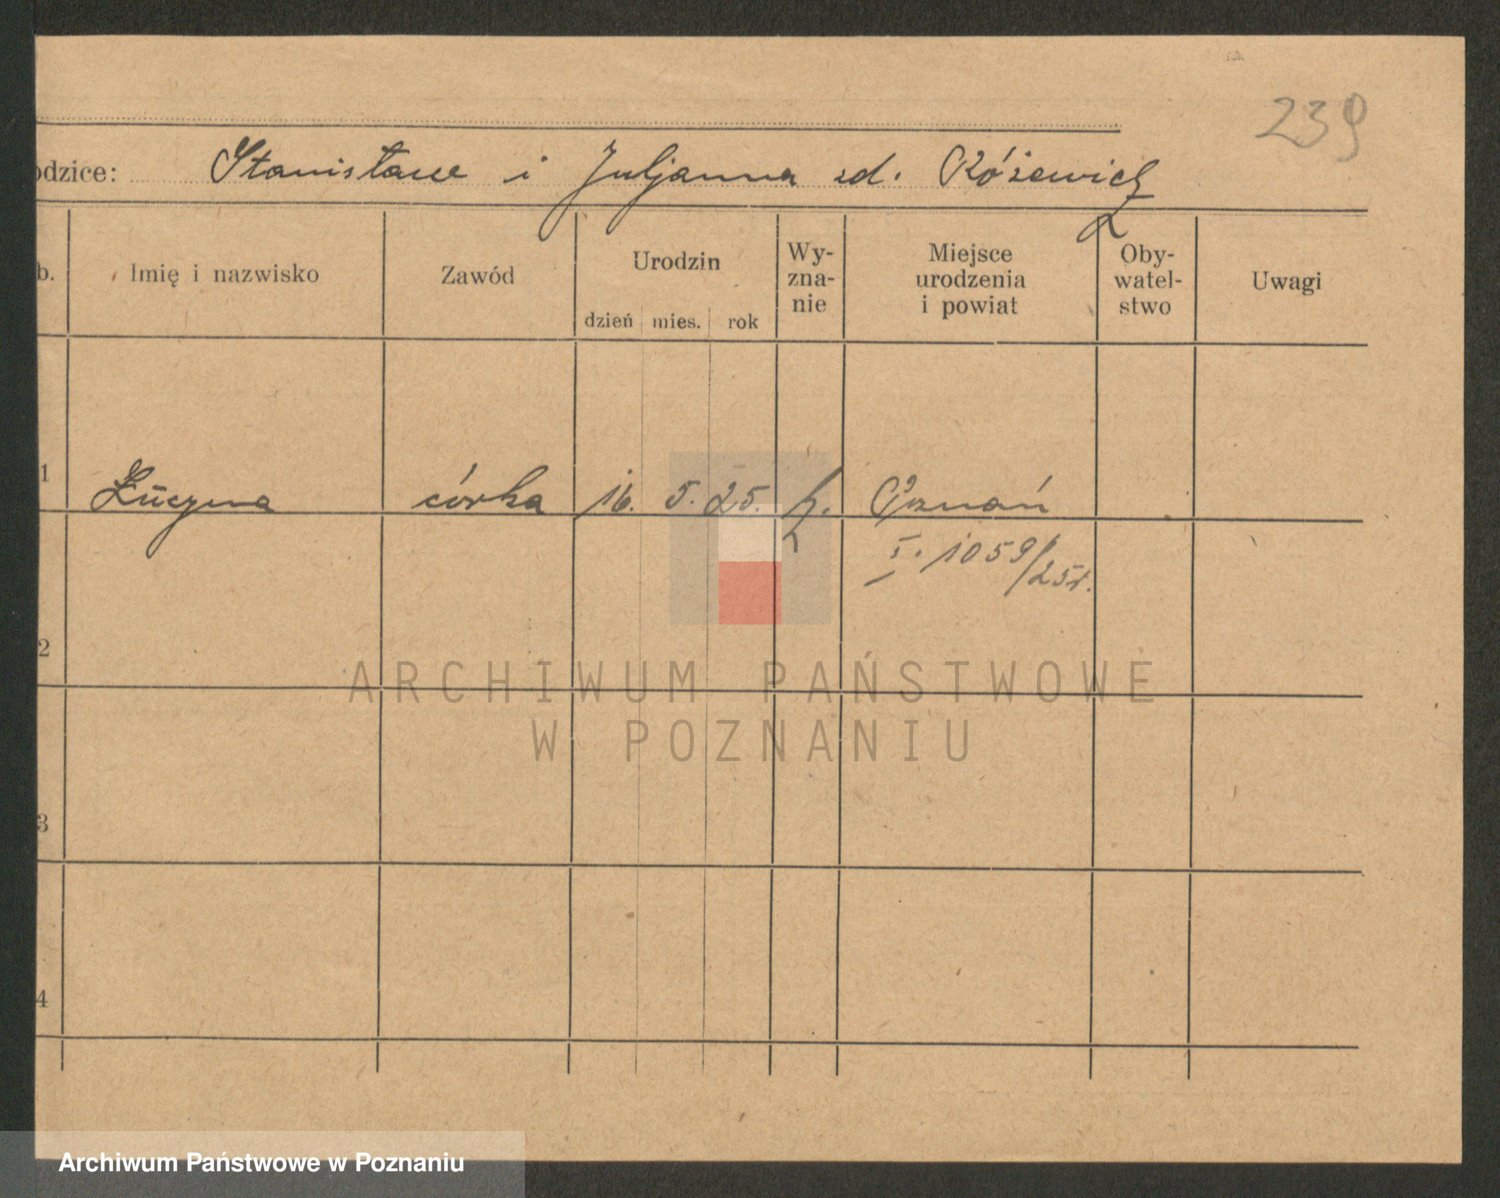 239
odzice: Stanisław i Juljanna zd. Różewicz
b. Imię i nazwisko Zawód Urodzin dzień mies. rok Wy-zna-nie Miejsce urodzenia i powiat Oby-watel-stwo Uwagi
1 Łucyna córka 16. 5. 25. Poznań
I. 1059/25r.
2
ARCHIWUM PAŃSTWOWE
W POZNANIU
3
4
Archiwum Państwowe w Poznaniu